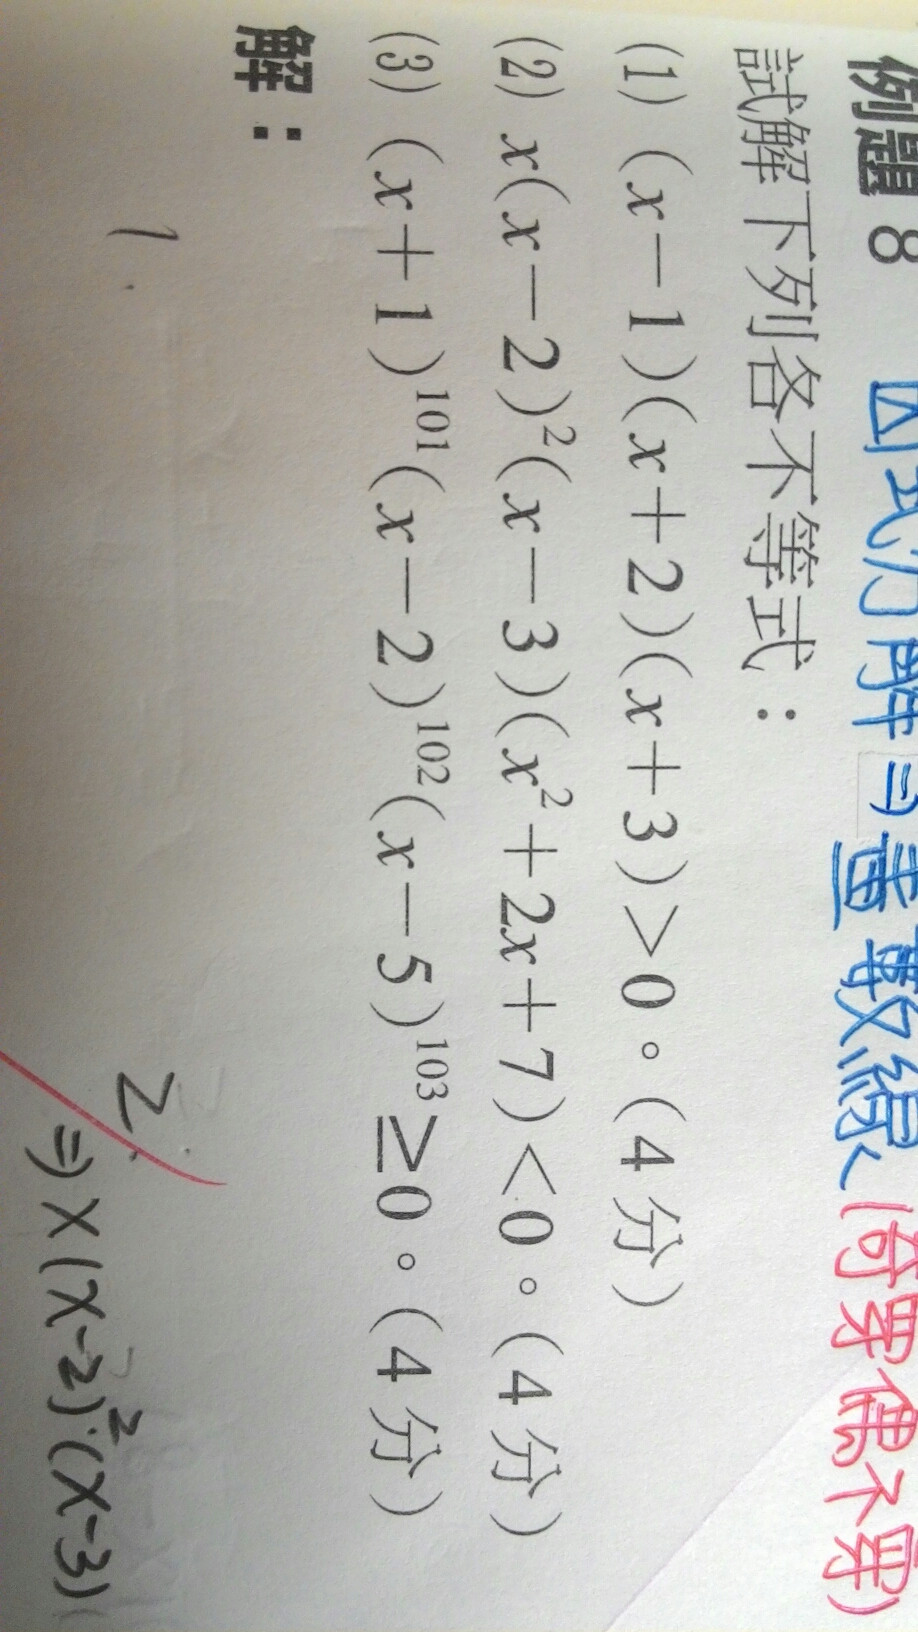 例題 8 因式分解⇒畫數線(奇穿偶不穿)
試解下列各不等式：
(1) (x－1)(x＋2)(x＋3)＞0。(4 分)
(2) x(x－2)²(x－3)(x²＋2x＋7)＜0。(4 分)
(3) (x＋1)¹⁰¹(x－2)¹⁰²(x－5)¹⁰³≥0。(4 分)
解：
1.
2.
⇒x(x-2)²(x-3)